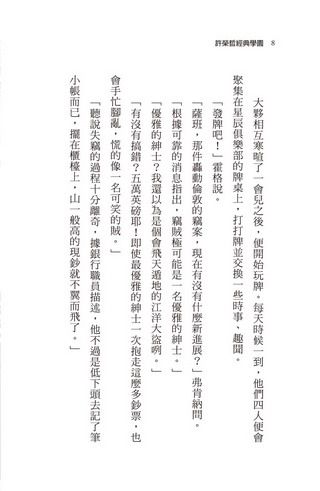 許榮哲經典學園 8
大夥相互寒暄了一會兒之後，便開始玩牌。每天時候一到，他們四人便會
聚集在星辰俱樂部的牌桌上，打打牌並交換一些時事、趣聞。
「發牌吧！」霍格說。
「薩班，那件轟動倫敦的竊案，現在有沒有什麼新進展？」弗肯納問。
「根據可靠的消息指出，竊賊極可能是一名優雅的紳士。」
「優雅的紳士？我還以為是個會飛天遁地的江洋大盜咧。」
「有沒有搞錯？五萬英磅耶！即使最優雅的紳士一次抱走這麼多鈔票，也
會手忙腳亂，慌的像一名可笑的賊。」
「聽說失竊的過程十分離奇，據銀行職員描述，他不過是低下頭去記了筆
小帳而已，擺在櫃檯上，山一般高的現鈔就不翼而飛了。」